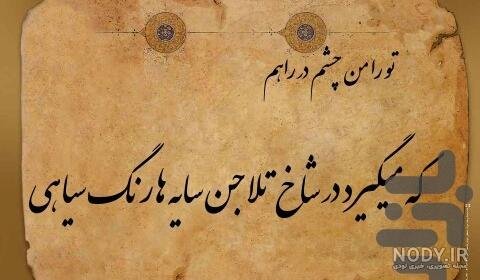 تو را من چشم در راهم
که میگیرد در شاخ تلاجن سایه ها رنگ سیاهی
NODY.IR
مجله تصویری، خبری نودی